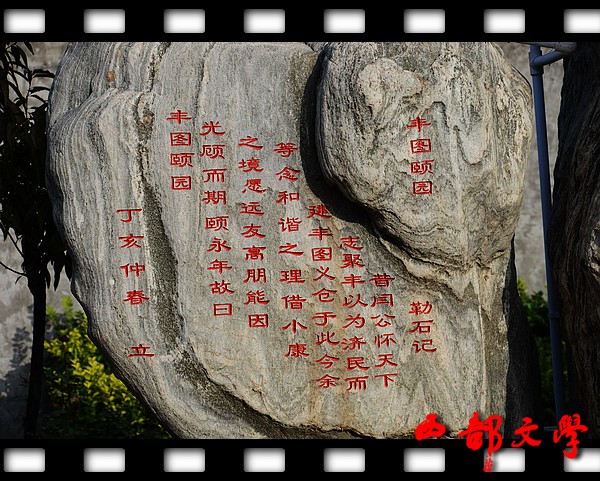 丰图颐园
勒石记
昔闫公怀天下
志聚丰以为济民而
建丰图义仓于此今余
等念和谐之理借小康
之境愿远友高朋能因
光顾而期颐永年故曰
丰图颐园
丁亥仲春 立
西部文学